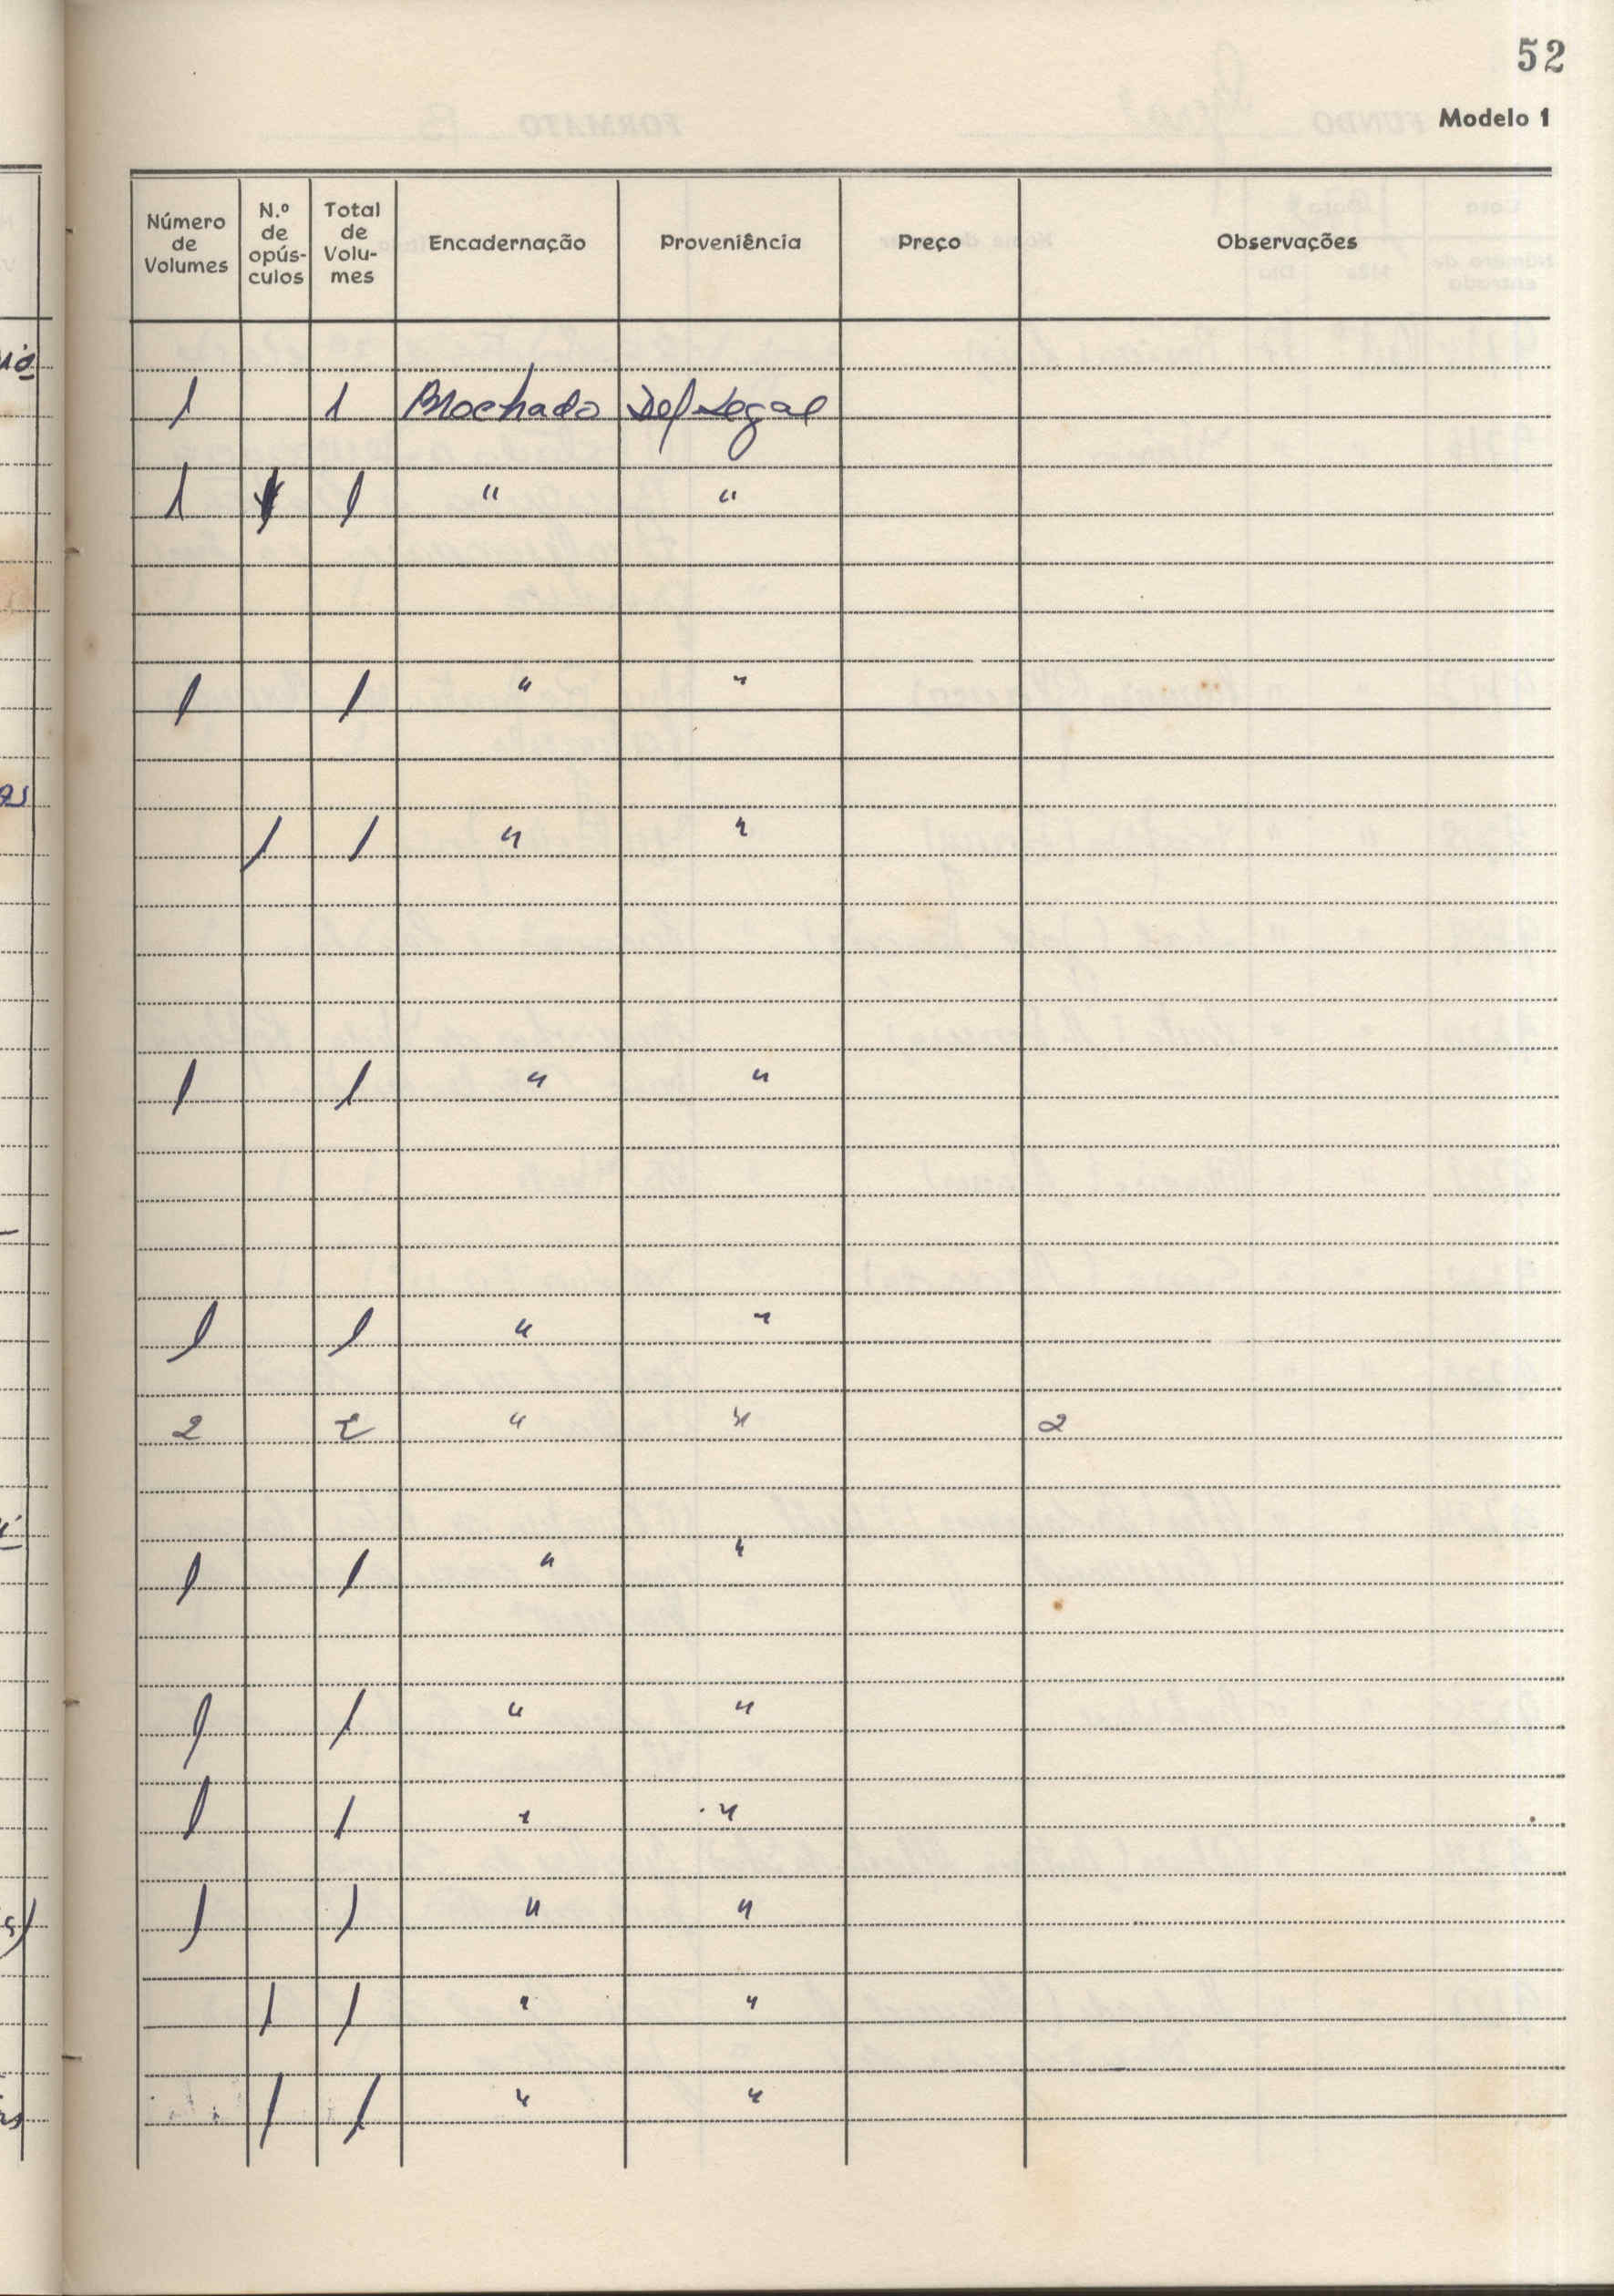 52
Modelo 1
Número de Volumes | N.º de opús-culos | Total de Volu-mes | Encadernação | Proveniência | Preço | Observações
1 | | 1 | Brochado | Dep Legal
1 | | 1 | " | "
1 | | 1 | " | "
| 1 | 1 | " | "
1 | | 1 | " | "
1 | | 1 | " | "
2 | | 2 | " | " | | 2
1 | | 1 | " | "
1 | | 1 | " | "
1 | | 1 | " | "
1 | | 1 | " | "
| 1 | 1 | " | "
| 1 | 1 | " | "